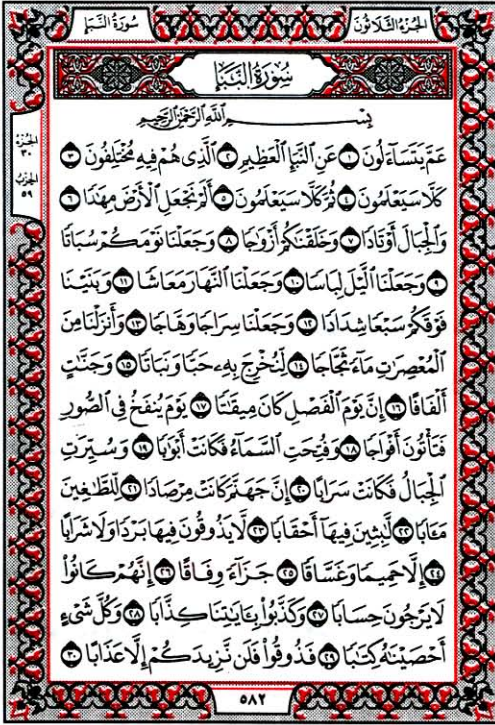 سُورَةُ النَّبَإِ
الجُزْءُ الثَّلَاثُونَ
سُورَةُ النَّبَإِ
بِسْمِ اللَّهِ الرَّحْمَٰنِ الرَّحِيمِ
الجزء
٣٠
الحزب
٥٩
عَمَّ يَتَسَآءَلُونَ ١ عَنِ ٱلنَّبَإِ ٱلْعَظِيمِ ٢ ٱلَّذِى هُمْ فِيهِ مُخْتَلِفُونَ ٣
كَلَّا سَيَعْلَمُونَ ٤ ثُمَّ كَلَّا سَيَعْلَمُونَ ٥ أَلَمْ نَجْعَلِ ٱلْأَرْضَ مِهَٰدًا ٦
وَٱلْجِبَالَ أَوْتَادًا ٧ وَخَلَقْنَٰكُمْ أَزْوَٰجًا ٨ وَجَعَلْنَا نَوْمَكُمْ سُبَاتًا
٩ وَجَعَلْنَا ٱلَّيْلَ لِبَاسًا ١٠ وَجَعَلْنَا ٱلنَّهَارَ مَعَاشًا ١١ وَبَنَيْنَا
فَوْقَكُمْ سَبْعًا شِدَادًا ١٢ وَجَعَلْنَا سِرَاجًا وَهَّاجًا ١٣ وَأَنزَلْنَا مِنَ
ٱلْمُعْصِرَٰتِ مَآءً ثَجَّاجًا ١٤ لِّنُخْرِجَ بِهِۦ حَبًّا وَنَبَاتًا ١٥ وَجَنَّٰتٍ
أَلْفَافًا ١٦ إِنَّ يَوْمَ ٱلْفَصْلِ كَانَ مِيقَٰتًا ١٧ يَوْمَ يُنفَخُ فِى ٱلصُّورِ
فَتَأْتُونَ أَفْوَاجًا ١٨ وَفُتِحَتِ ٱلسَّمَآءُ فَكَانَتْ أَبْوَٰبًا ١٩ وَسُيِّرَتِ
ٱلْجِبَالُ فَكَانَتْ سَرَابًا ٢٠ إِنَّ جَهَنَّمَ كَانَتْ مِرْصَادًا ٢١ لِّلطَّٰغِينَ
مَـَٔابًا ٢٢ لَّٰبِثِينَ فِيهَآ أَحْقَابًا ٢٣ لَّا يَذُوقُونَ فِيهَا بَرْدًا وَلَا شَرَابًا
٢٤ إِلَّا حَمِيمًا وَغَسَّاقًا ٢٥ جَزَآءً وِفَاقًا ٢٦ إِنَّهُمْ كَانُوا۟
لَا يَرْجُونَ حِسَابًا ٢٧ وَكَذَّبُوا۟ بِـَٔايَٰتِنَا كِذَّابًا ٢٨ وَكُلَّ شَىْءٍ
أَحْصَيْنَٰهُ كِتَٰبًا ٢٩ فَذُوقُوا۟ فَلَن نَّزِيدَكُمْ إِلَّا عَذَابًا ٣٠
٥٨٢